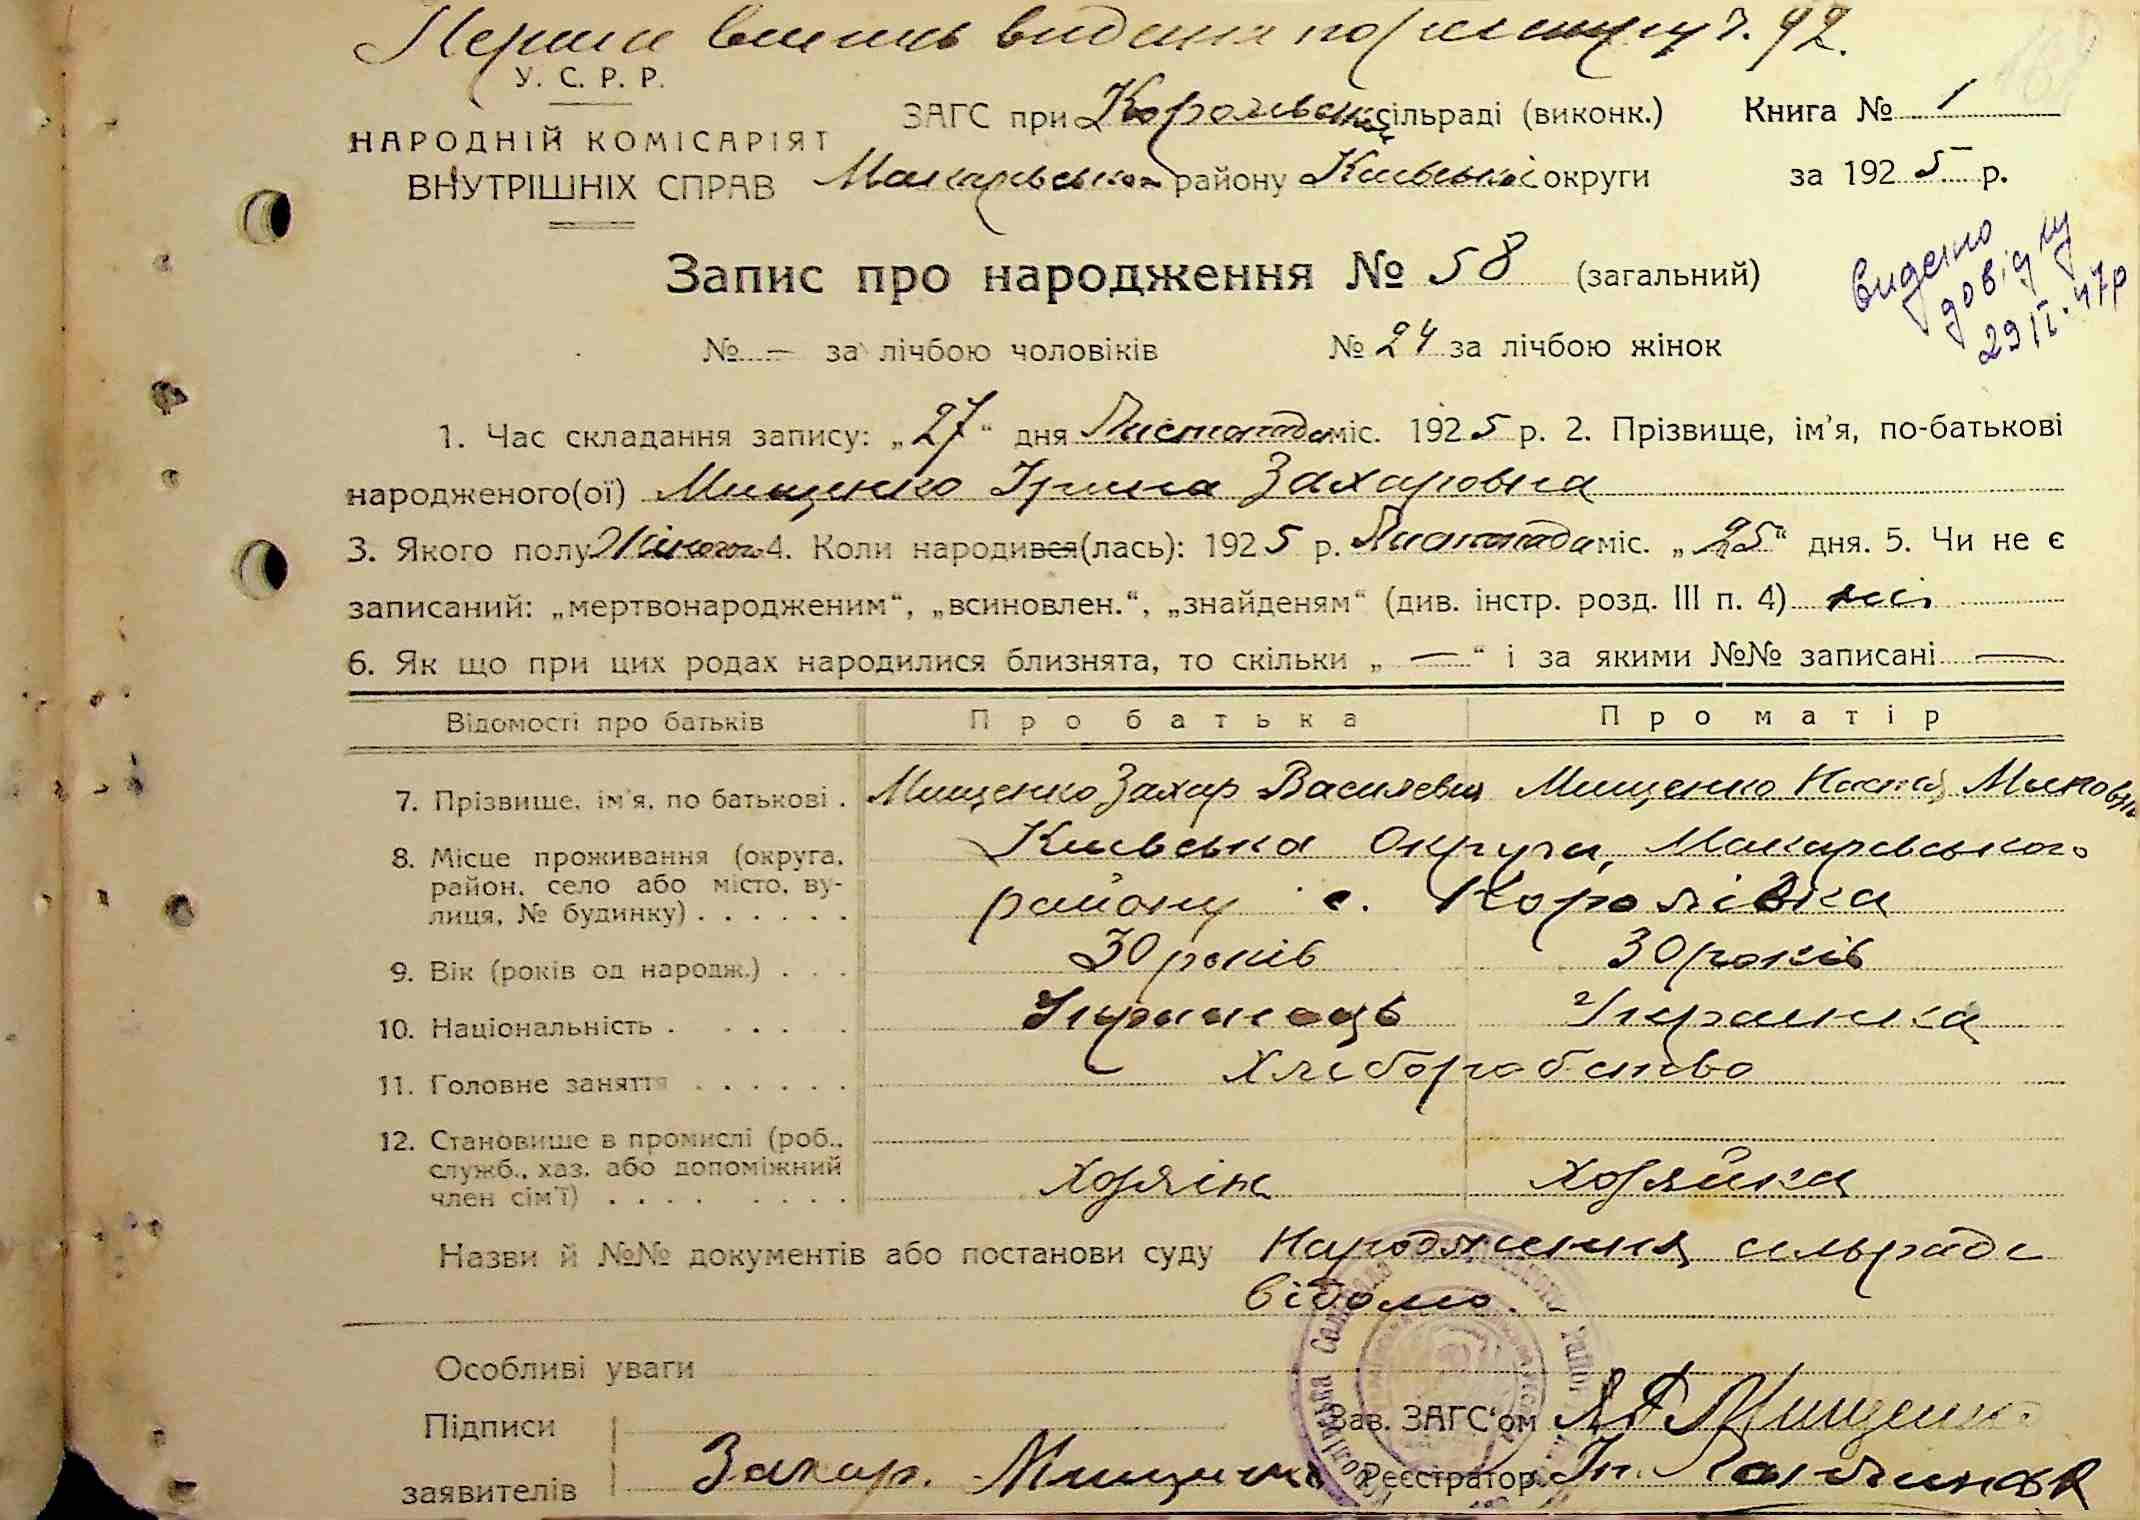 Перша випись видана по реєстру ч. 92.
У. С. Р. Р.
НАРОДНІЙ КОМІСАРІЯТ
ВНУТРІШНІХ СПРАВ
ЗАГС при Королівській сільраді (виконк.) Книга № 1
Макарівського району Київської округи за 1925 р.
Запис про народження № 58 (загальний)
Видано
довідку
29 IV. 47р
№ — за лічбою чоловіків № 24 за лічбою жінок
1. Час складання запису: „27“ дня Листопада міс. 1925 р. 2. Прізвище, ім'я, по-батькові
народженого(ої) Мищенко Ірина Захаровна
3. Якого полу Жіночого 4. Коли народився(лась): 1925 р. Листопада міс. „25“ дня. 5. Чи не є
записаний: „мертвонародженим“, „всиновлен.“, „знайденям“ (див. інстр. розд. III п. 4) ні
6. Як що при цих родах народилися близнята, то скільки „—“ і за якими №№ записані —
Відомості про батьків Про батька Про матір
7. Прізвише, ім'я, по батькові . Мищенко Захар Василевич Мищенко Настя
8. Місце проживання (округа, Київська округа, Макарівського
район, село або місто, ву- району с. Королівка
лиця, № будинку) . . . . . .
9. Вік (років од народж.) . . . 30 років 30 років
10. Національність . . . . . Українець Українка
11. Головне заняття . . . . . . Хліборобство
12. Становише в промислі (роб.,
служб., хаз. або допоміжний хозяін хозяйка
член сім'ї) . . . . . . . .
Назви й №№ документів або постанови суду Народження сільраді
відомо.
Особливі уваги
Підписи Зав. ЗАГС'ом Мищенко
заявителів Захар. Мищенко Реєстратор